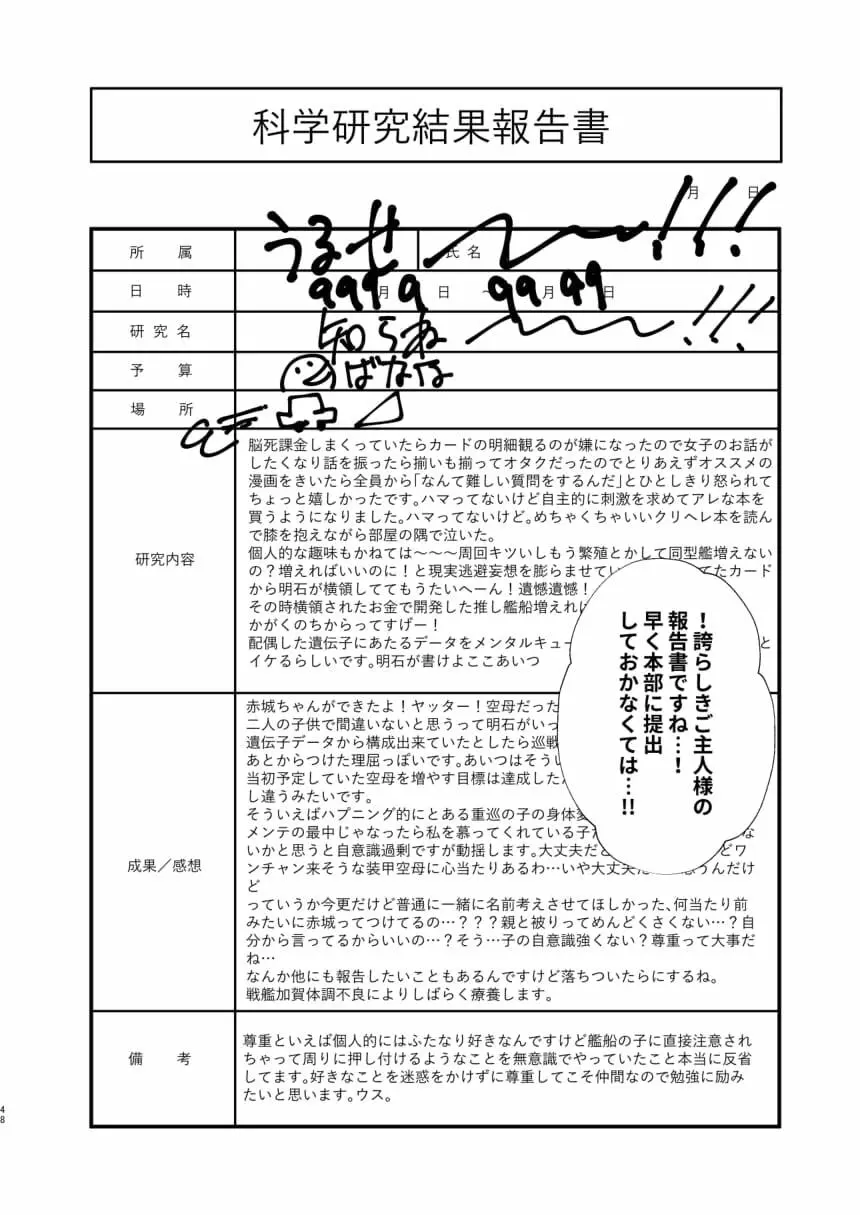 科学研究結果報告書
月 日
所 属 うるせ〜〜!!! 氏名
日 時 9999 月 日 〜 99 月 99 日
研究名 知らね〜〜!!!
予 算 ばなな
場 所
研究内容
脳死課金しまくっていたらカードの明細観るのが嫌になったので女子のお話が
したくなり話を振ったら揃いも揃ってオタクだったのでとりあえずオススメの
漫画をきいたら全員から「なんて難しい質問をするんだ」とひとしきり怒られて
ちょっと嬉しかったです。ハマってないけど自主的に刺激を求めてアレな本を
買うようになりました。ハマってないけど。めちゃくちゃいいクリヘレ本を読ん
で膝を抱えながら部屋の隅で泣いた。
個人的な趣味もかねては〜〜〜周回キツいしもう繁殖とかして同型艦増えない
の？増えればいいのに！と現実逃避妄想を膨らませてい てたカード
から明石が横領しててもうたいへーん！遺憾遺憾！
その時横領されたお金で開発した推し艦船増えれ
かがくのちからってすげー！
配偶した遺伝子にあたるデータをメンタルキュー と
イケるらしいです。明石が書けよここあいつ
！誇らしきご主人様の
報告書ですね…！
早く本部に提出
しておかなくては…!!
成果／感想
赤城ちゃんができたよ！ヤッター！空母だった
二人の子供で間違いないと思うって明石がいっ
遺伝子データから構成出来ていたとしたら巡戦
あとからつけた理屈っぽいです。あいつはそうい
当初予定していた空母を増やす目標は達成した
し違うみたいです。
そういえばハプニング的にとある重巡の子の身体
メンテの最中じゃなったら私を慕ってくれている子 な
いかと思うと自意識過剰ですが動揺します。大丈夫だ どワ
ンチャン来そうな装甲空母に心当たりあるわ…いや大丈夫だ うんだけ
ど
っていうか今更だけど普通に一緒に名前考えさせてほしかった、何当たり前
みたいに赤城ってつけてるの…？？？親と被りってめんどくさくない…？自
分から言ってるからいいの…？そう…子の自意識強くない？尊重って大事だ
ね…
なんか他にも報告したいこともあるんですけど落ちついたらにするね。
戦艦加賀体調不良によりしばらく療養します。
備 考
尊重といえば個人的にはふたなり好きなんですけど艦船の子に直接注意され
ちゃって周りに押し付けるようなことを無意識でやっていたこと本当に反省
してます。好きなことを迷惑をかけずに尊重してこそ仲間なので勉強に励み
たいと思います。ウス。
48